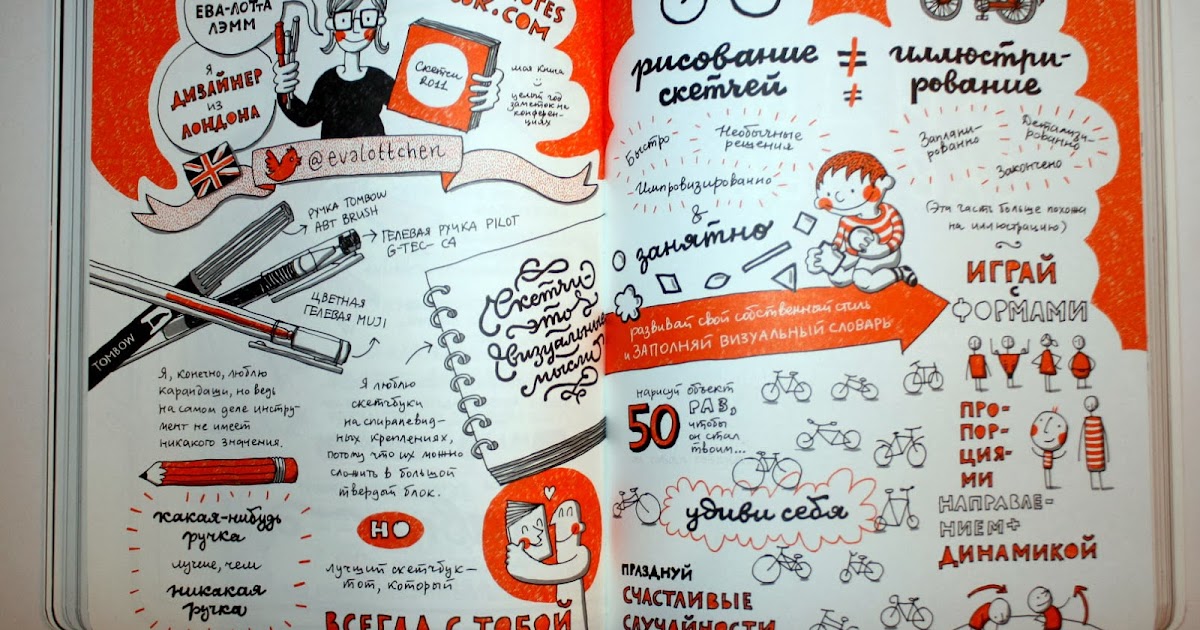 ЕВА-ЛОТТА
ЛЭММ
NOTES
BOOK.COM
Я
ДИЗАЙНЕР
ИЗ
ЛОНДОНА
Скетчи
2011
моя книга
целый год
заметок на
конферен-
циях
@evalottchen
РУЧКА TOMBOW
ABT BRUSH
ГЕЛЕВАЯ РУЧКА PILOT
G-TEC-C4
ЦВЕТНАЯ
ГЕЛЕВАЯ MUJI
TOMBOW
Скетчи-
это
визуальные
мысли
Я, конечно, люблю
карандаши, но ведь
на самом деле инстру-
мент не имеет
никакого значения.
какая-нибудь
ручка
лучше, чем
никакая
ручка
Я люблю
скетчбуки
на спиралевид-
ных креплениях,
потому что их можно
сложить в большой
твердый блок.
НО
лучший скетчбук-
тот, который
ВСЕГДА С ТОБОЙ
рисование
скетчей
≠
≠
иллюстри-
рование
Быстро
Необычные
решения
Импровизированно
&
занятно
Заплани-
рованно
Детализи-
рованно
Закончено
(Эта часть больше похожа
на иллюстрацию)
развивай свой собственный стиль
и ЗАПОЛНЯЙ ВИЗУАЛЬНЫЙ СЛОВАРЬ
ИГРАЙ
с
ФОРМАМИ
нарисуй объект
50 РАЗ,
чтобы
он стал
твоим...
ПРО-
ПОР-
ЦИЯ-
МИ
удиви себя
НАПРАВЛЕ-
НИЕМ+
ДИНАМИКОЙ
ПРАЗДНУЙ
СЧАСТЛИВЫЕ
СЛУЧАЙНОСТИ